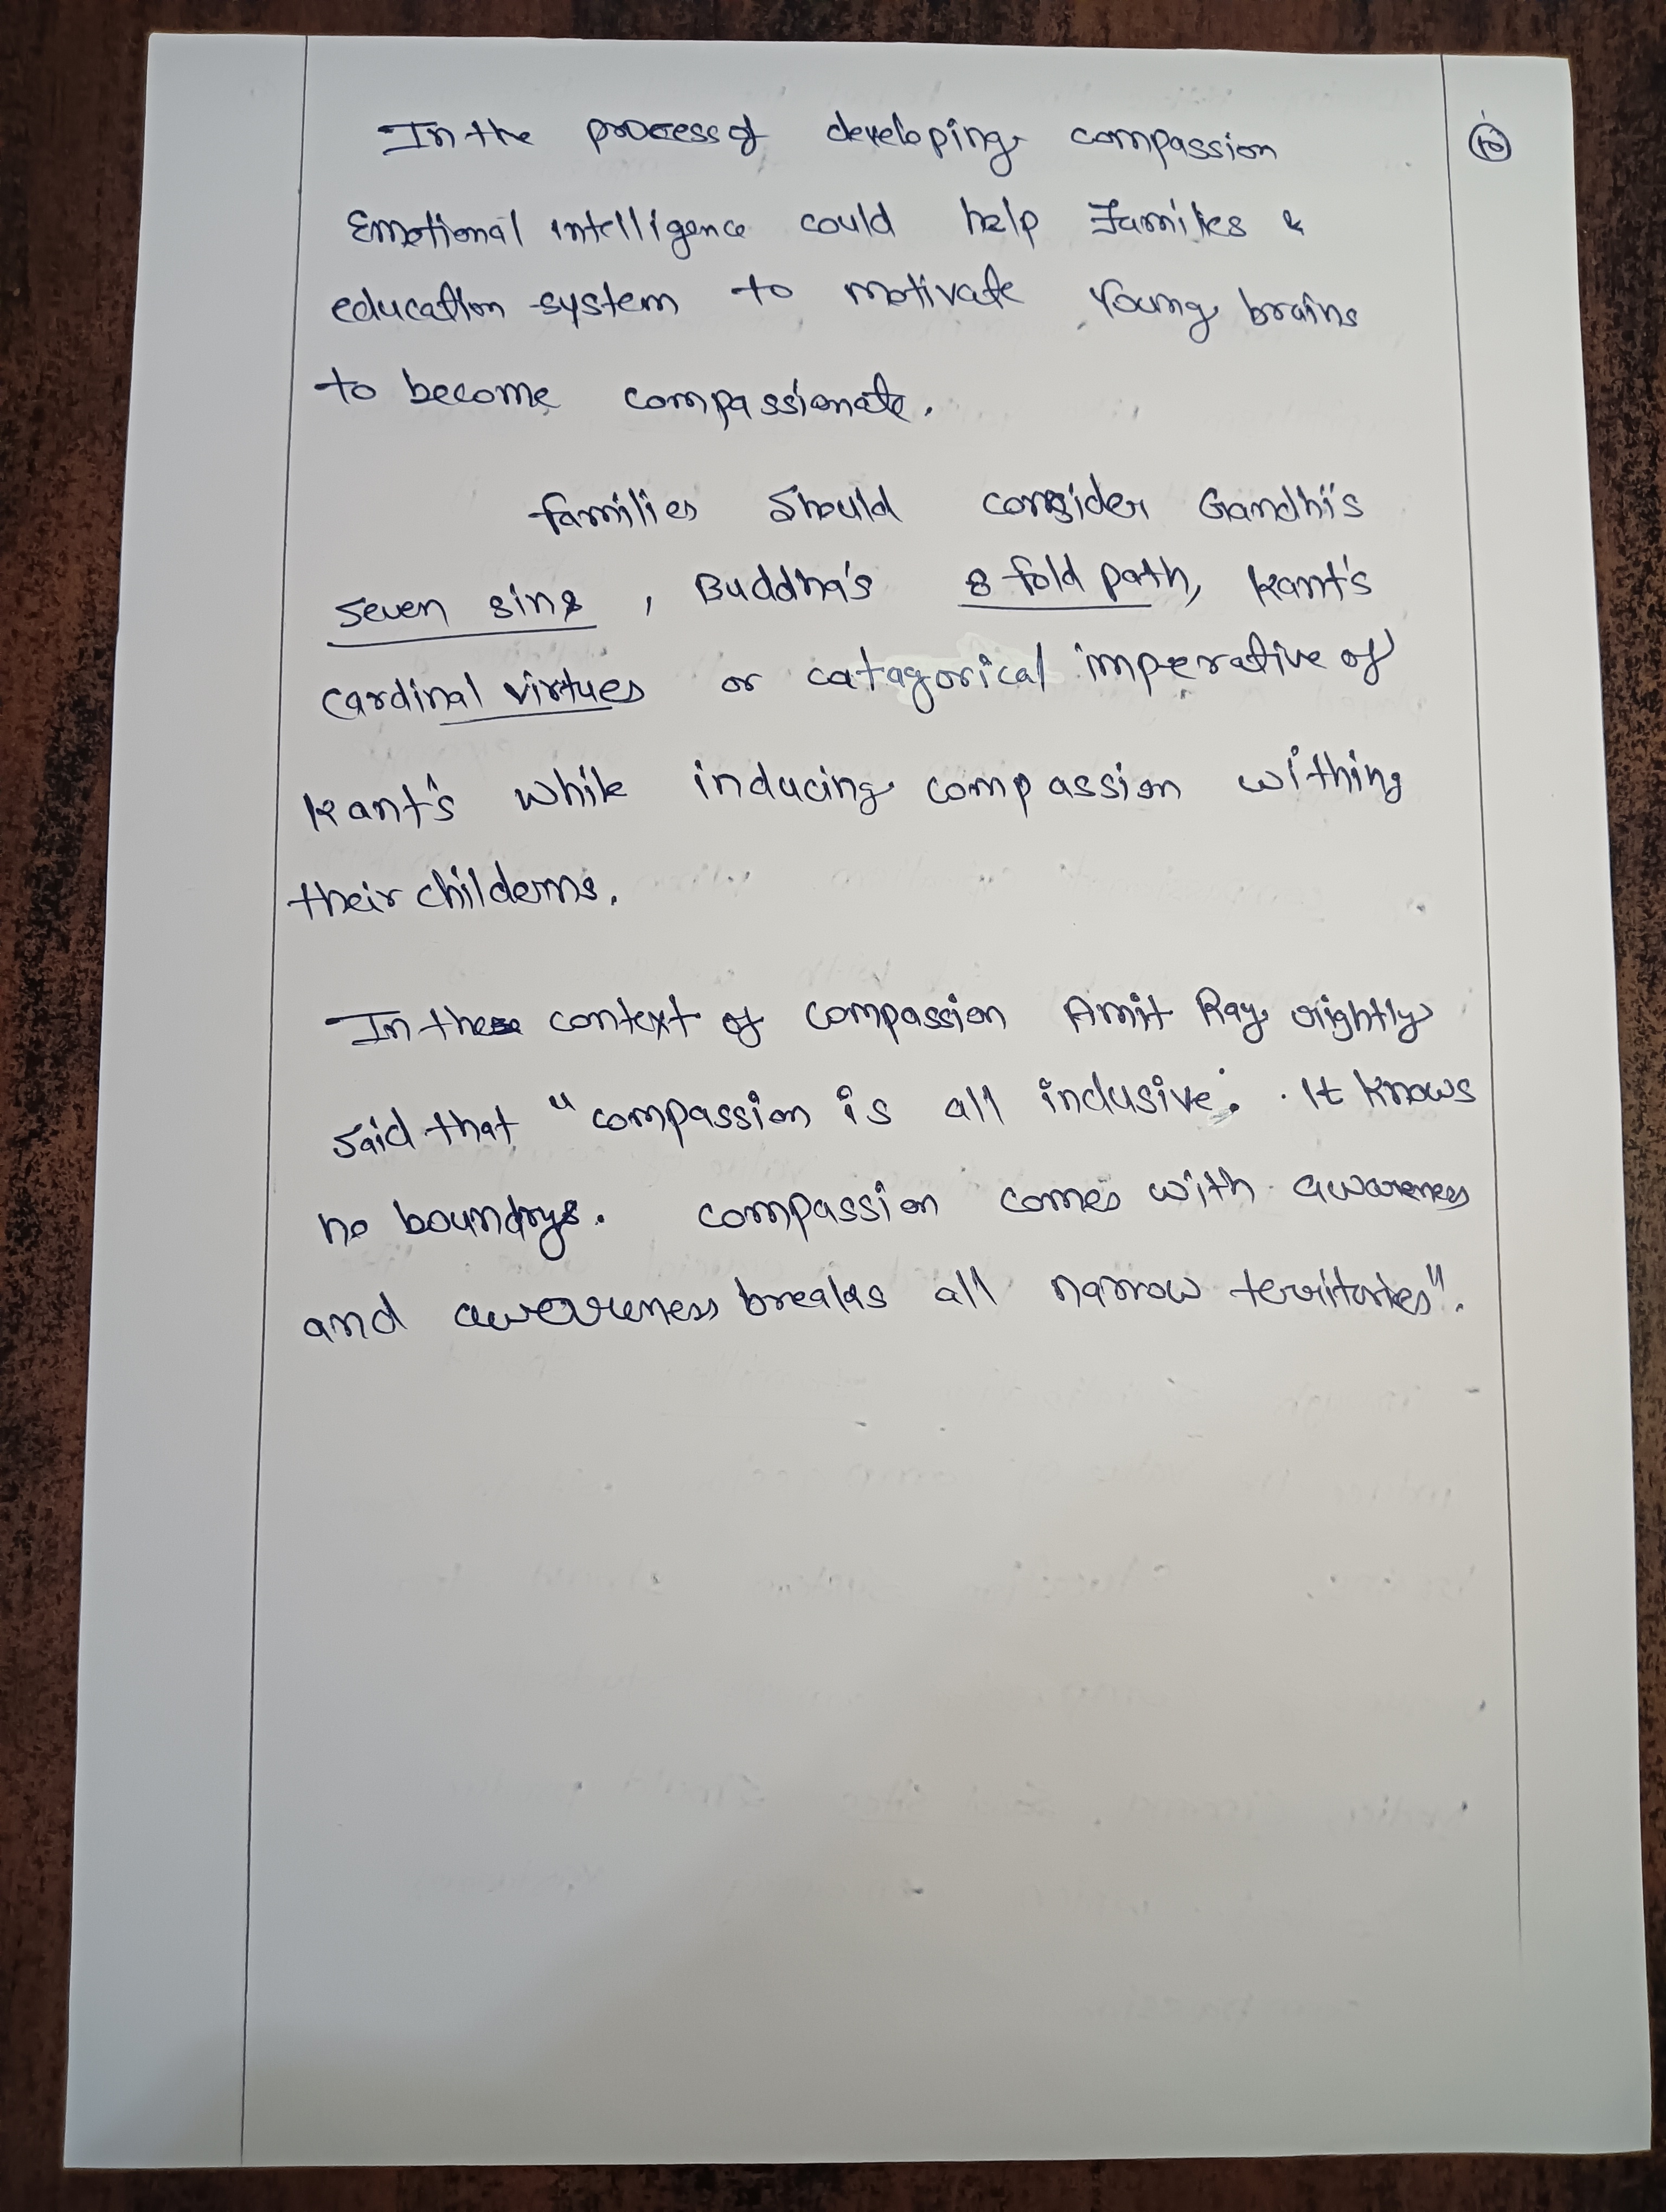 In the process of developing compassion
10
Emotional intelligence could help Families &
education system to motivate Young brains
to become compassionate.
families should consider Gandhi's
seven sins, Buddha's 8 fold path, Kant's
cardinal virtues or catagorical imperative of
Kant's while inducing compassion withing
their childerns.
In these context of compassion Amit Ray rightly
said that "compassion is all inclusive. It knows
no boundrys. compassion comes with awareness
and awereness breaks all narrow territories".